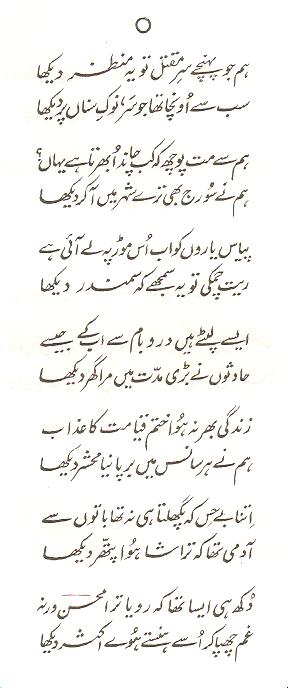 ہم جو پہنچے سرِ مقتل تو یہ منظر دیکھا
سب سے اُونچا تھا جو سر، نوکِ سناں پر دیکھا
ہم سے مت پوچھ کہ کب چاند اُبھرتا ہے یہاں؟
ہم نے سُورج بھی ترے شہر میں آ کر دیکھا
پیاس یاروں کو اب اُس موڑ پہ لے آئی ہے
ریت چمکی تو یہ سمجھے کہ سمندر دیکھا
ایسے لپٹے ہیں در و بام سے اب کے جیسے
حادثوں نے بڑی مدّت میں مرا گھر دیکھا
زندگی بھر نہ ہُوا ختم قیامت کا عذاب
ہم نے ہر سانس میں برپا نیا محشر دیکھا
اِتنا بے حِس کہ پگھلتا ہی نہ تھا باتوں سے
آدمی تھا کہ تراشا ہُوا پتھّر دیکھا
دُکھ ہی ایسا تھا کہ رویا ترا محسنؔ ورنہ
غم چھپا کر اُسے ہنستے ہُوئے اکثر دیکھا